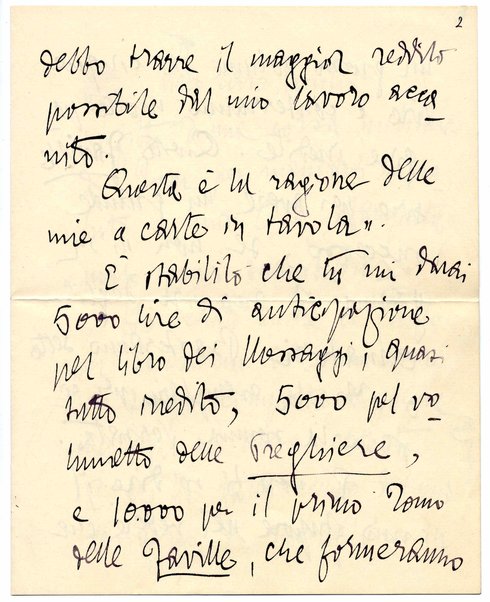 2
debbo trarre il maggior reddito
possibile dal mio lavoro acca-
nito.
Questa è la ragione delle
mie a carte in tavola".
È stabilito che tu mi darai
5000 lire di anticipazione
pel libro dei Messaggi quasi
tutto inedito, 5000 pel vo-
lumetto delle Preghiere,
e 10.000 per il primo Tomo
delle Faville, che formeranno